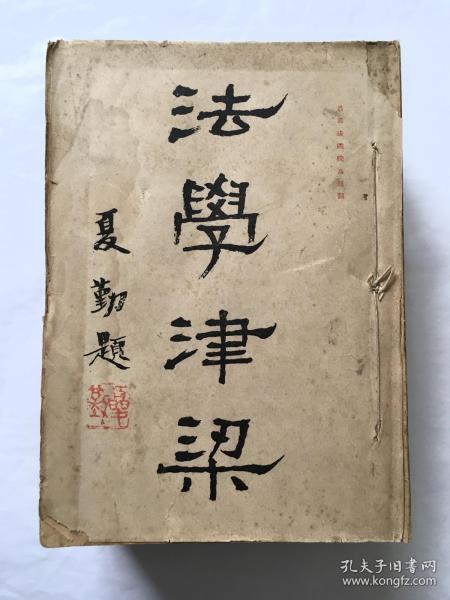 法學津梁
夏勤題
孔夫子旧書网
www.kongfz.com